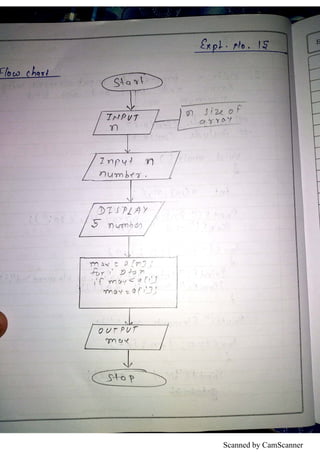 Expt. No. 15
Flow chart
Start
INPUT
n
n size of
array
Input n
number.
DISPLAY
5 number
max = a[0];
for i 0 to n
if max < a[i]
max = a[i];
OUTPUT
max
Stop
Scanned by CamScanner